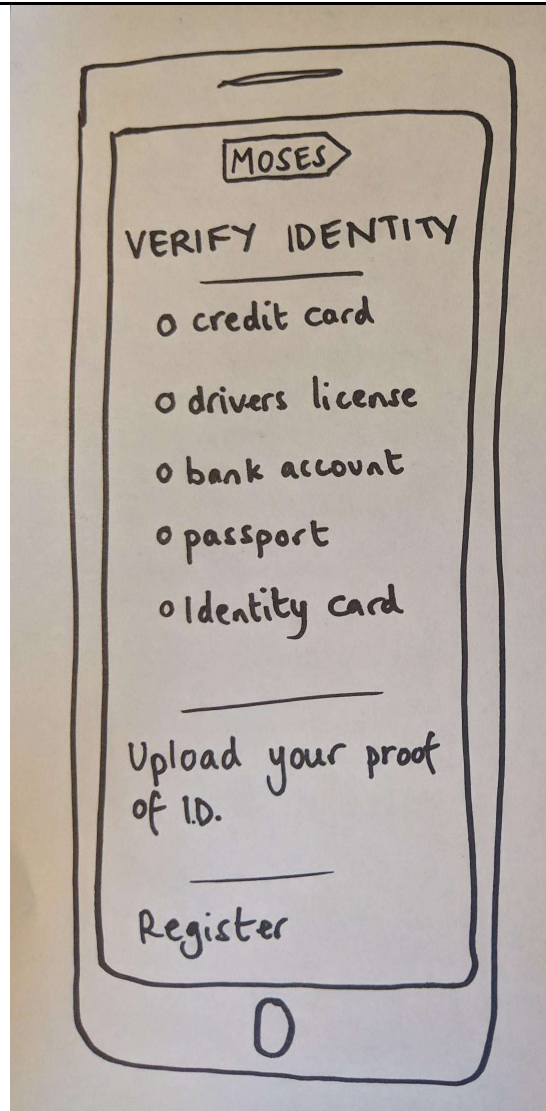 MOSES
VERIFY IDENTITY
credit card
drivers license
bank account
passport
Identity card
Upload your proof
of I.D.
Register